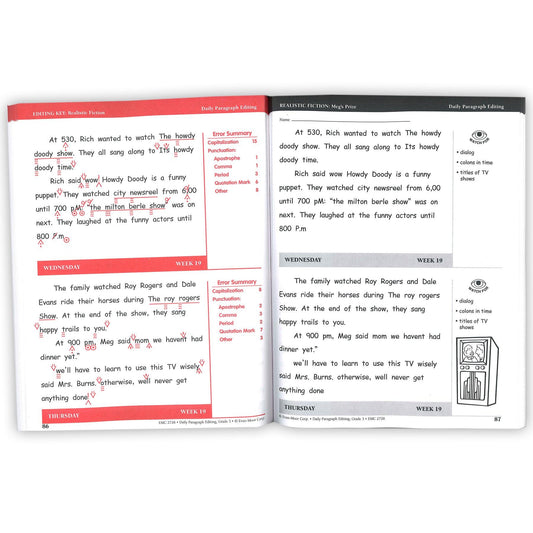 EDITING KEY: Realistic Fiction
Daily Paragraph Editing
At 530, Rich wanted to watch The howdy
doody show. They all sang along to Its howdy
doody time.
Rich said wow Howdy Doody is a funny
puppet. They watched city newsreel from 6,00
until 700 pM. "the milton berle show" was on
next. They laughed at the funny actors until
800 P.m
Error Summary
Capitalization 15
Punctuation:
Apostrophe 1
Comma 1
Period 3
Quotation Mark 6
Other 8
WEDNESDAY
WEEK 19
The family watched Roy Rogers and Dale
Evans ride their horses during The roy rogers
Show. At the end of the show, they sang
happy trails to you.
At 900 pm, Meg said mom we havent had
dinner yet."
we'll have to learn to use this TV wisely
said Mrs. Burns. otherwise, well never get
anything done
Error Summary
Capitalization 8
Punctuation:
Apostrophe 2
Comma 3
Period 2
Quotation Mark 7
Other 3
THURSDAY
WEEK 19
86
EMC 2726 • Daily Paragraph Editing, Grade 3 • © Evan-Moor Corp.
REALISTIC FICTION: Meg's Prize
Daily Paragraph Editing
Name
At 530, Rich wanted to watch The howdy
doody show. They all sang along to Its howdy
doody time.
Rich said wow Howdy Doody is a funny
puppet. They watched city newsreel from 6,00
until 700 pM. "the milton berle show" was on
next. They laughed at the funny actors until
800 P.m
WATCH FOR
• dialog
• colons in time
• titles of TV
shows
WEDNESDAY
WEEK 19
The family watched Roy Rogers and Dale
Evans ride their horses during The roy rogers
Show. At the end of the show, they sang
happy trails to you.
At 900 pm, Meg said mom we havent had
dinner yet."
we'll have to learn to use this TV wisely
said Mrs. Burns. otherwise, well never get
anything done
WATCH FOR
• dialog
• colons in time
• titles of TV
shows
THURSDAY
WEEK 19
© Evan-Moor Corp. • Daily Paragraph Editing, Grade 3 • EMC 2726
87